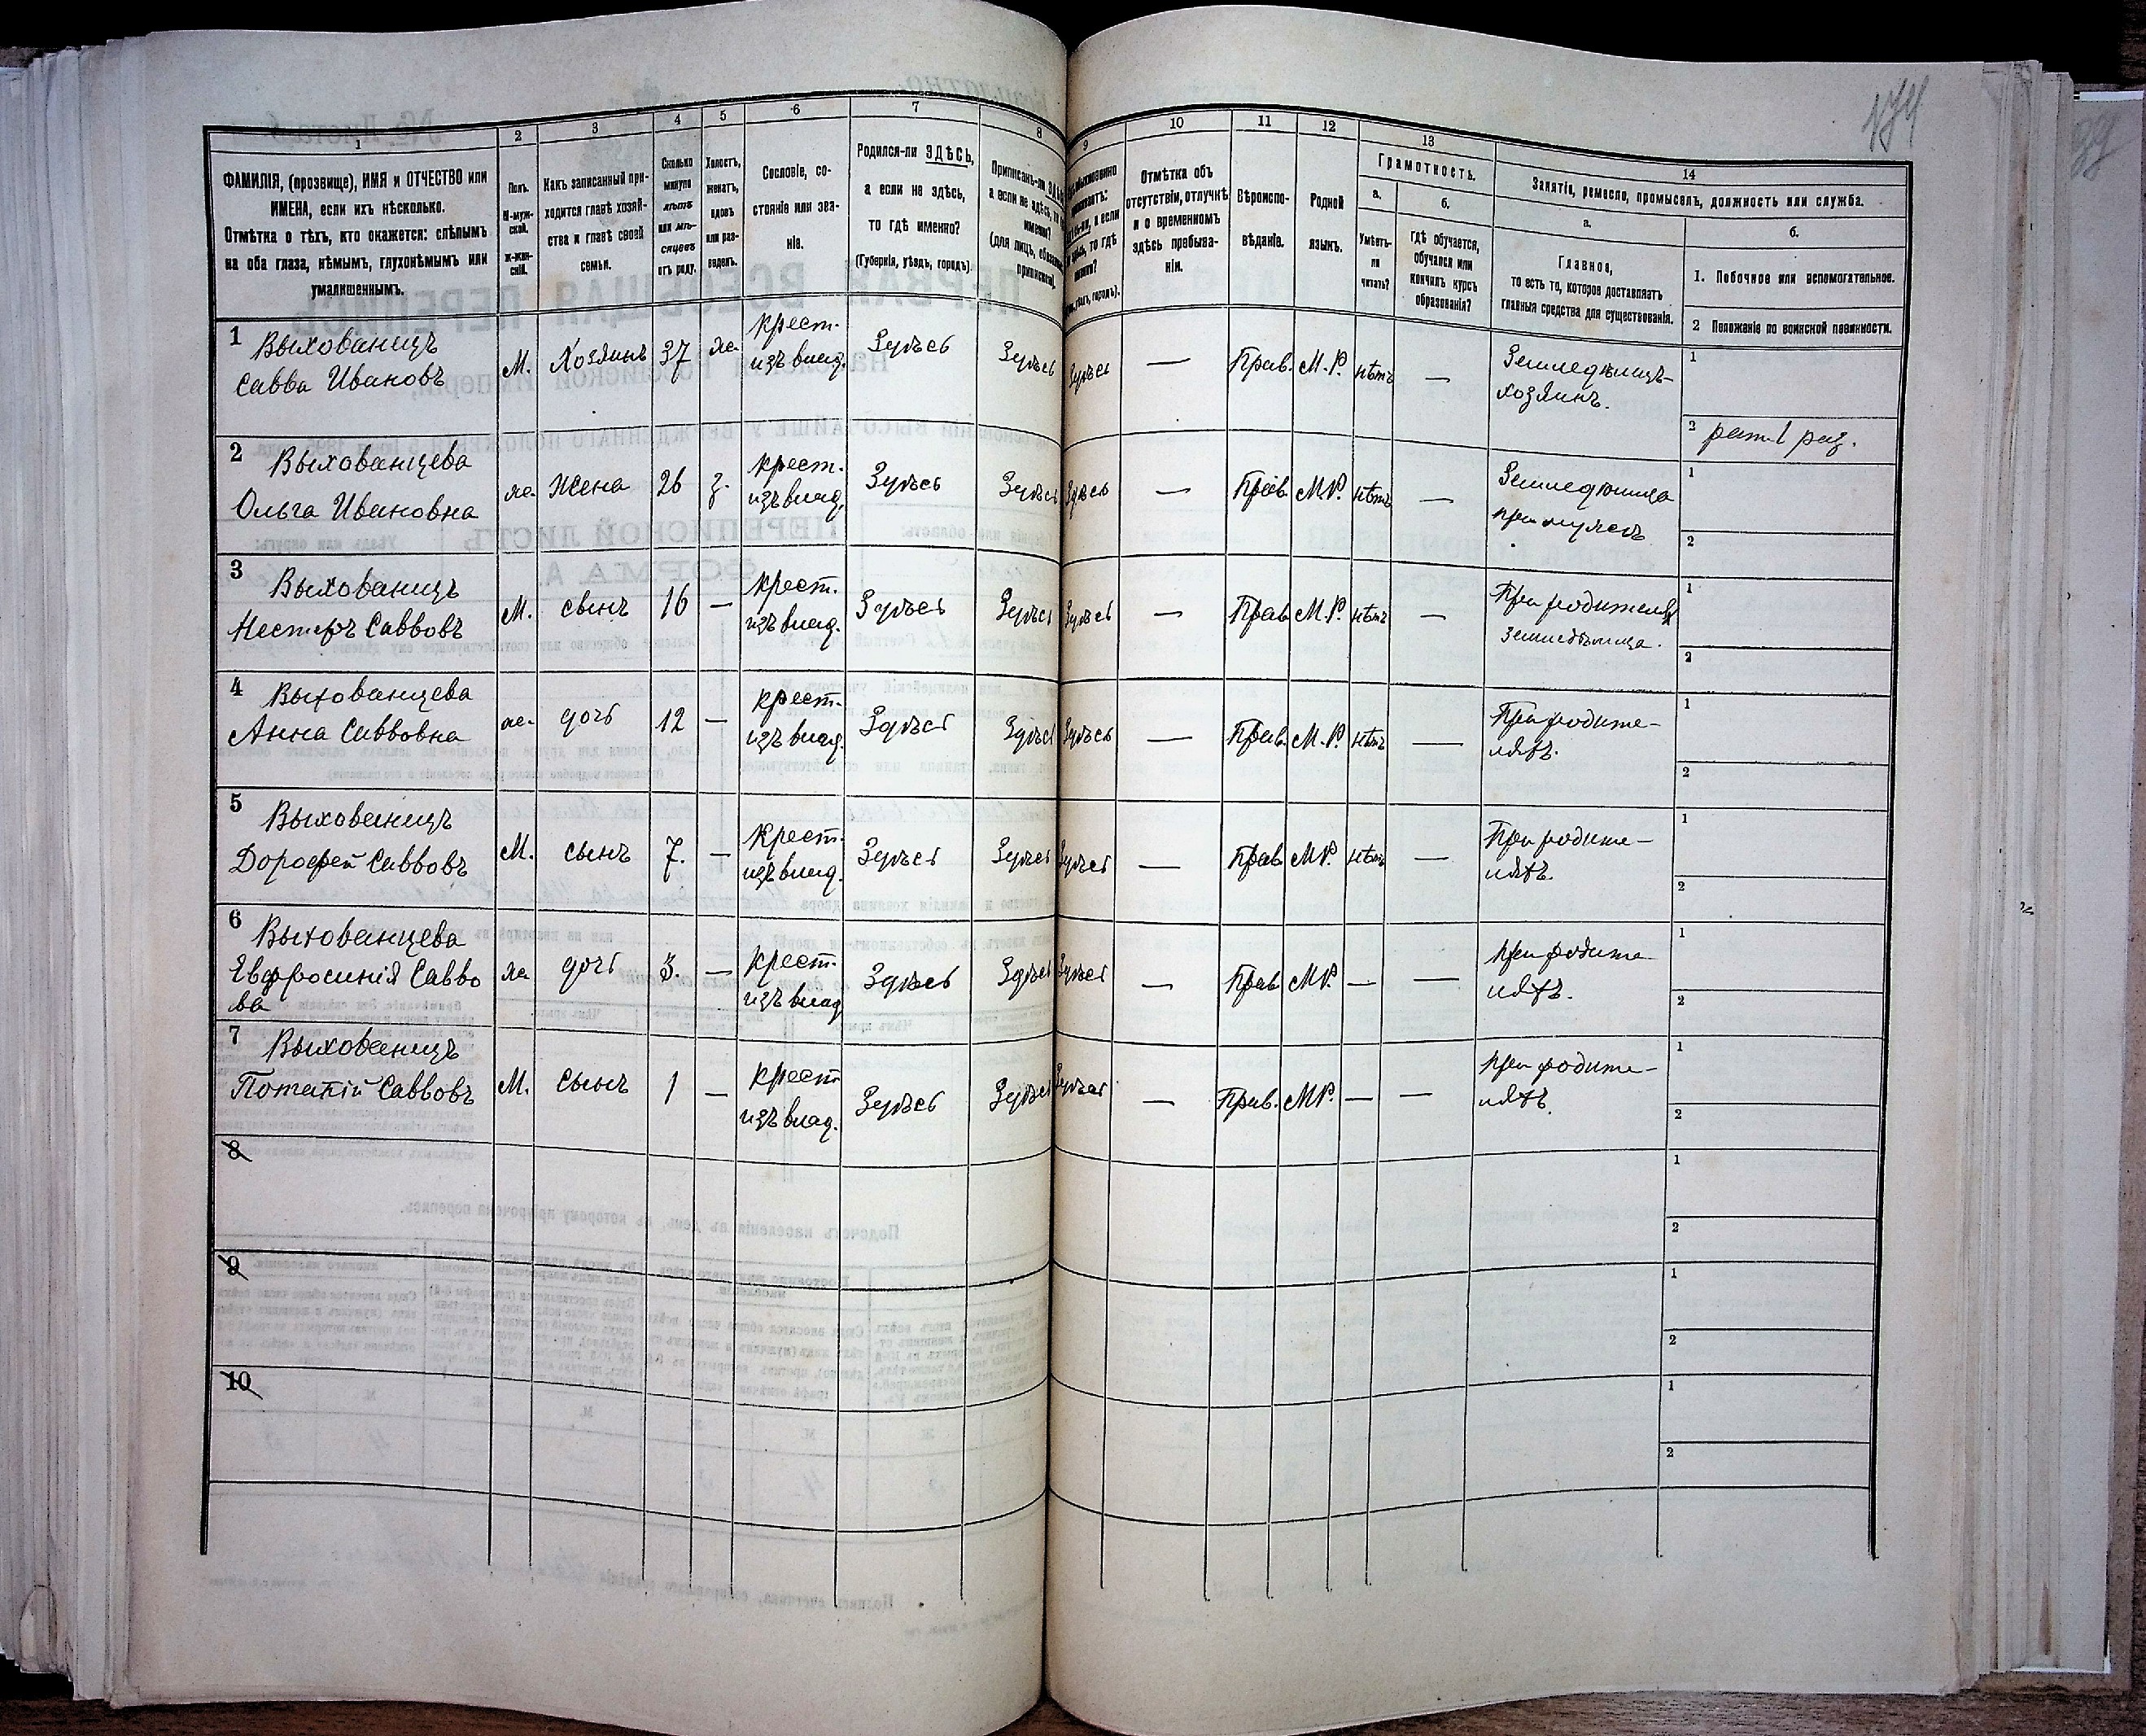 174
1 2 3 4 5 6 7 8 9 10 11 12 13 14
ФАМИЛІЯ, (прозвище), ИМЯ и ОТЧЕСТВО или
ИМЕНА, если ихъ нѣсколько.
Отмѣтка о тѣхъ, кто окажется: слѣпымъ
на оба глаза, нѣмымъ, глухонѣмымъ или
умалишеннымъ.
Полъ.
М-муж-
ской.
Ж-жен-
скій.
Какъ записанный при-
ходится главѣ хозяй-
ства и главѣ своей
семьи.
Сколько
минуло
лѣтъ
или мѣ-
сяцевъ
отъ роду.
Холостъ,
женатъ,
вдовъ
или раз-
веденъ.
Сословіе, со-
стояніе или зва-
ніе.
Родился-ли ЗДѢСЬ,
а если не здѣсь,
то гдѣ именно?
(Губернія, уѣздъ, городъ).
Приписанъ-ли
а если не здѣсь,
(для лицъ,
Отмѣтка объ
отсутствіи, отлучкѣ
и о временномъ
здѣсь пребыва-
ніи.
Вѣроиспо-
вѣданіе.
Родной
языкъ.
Грамотность.
а.
Умѣетъ-
ли
читать?
б.
гдѣ обучается,
обучался или
кончилъ курсъ
образованія?
Занятіе, ремесло, промыселъ, должность или служба.
а.
Главное,
то есть то, которое доставляетъ
главныя средства для существованія.
б.
1. Побочное или вспомогательное.
2 Положеніе по воинской повинности.
1 Выхованецъ
Савва Ивановъ
М. Хозяинъ 37 ж. крест.
изъ влад. Здѣсь Здѣсь Здѣсь — Прав. М.Р. нѣтъ —
Земледѣлецъ-
хозяинъ.
1
2 рат. 1 раз.
2 Выхованцева
Ольга Ивановна
ж. жена 26 з. крест.
изъ влад. Здѣсь Здѣсь Здѣсь — Прав. М.Р. нѣтъ —
Земледѣлица
при мужѣ
1
2
3 Выхованецъ
Несторъ Саввовъ
М. сынъ 16 — крест.
изъ влад. Здѣсь Здѣсь Здѣсь — Прав. М.Р. нѣтъ —
При родителях
1
2
4 Выхованцева
Анна Саввовна
ж. дочь 12 — крест.
изъ влад. Здѣсь Здѣсь Здѣсь — Прав. М.Р. нѣтъ —
При родите-
ляхъ.
1
2
5 Выхованецъ
Дорофей Саввовъ
М. сынъ 7. — крест.
изъ влад. Здѣсь Здѣсь Здѣсь — Прав М.Р. нѣтъ —
При родите-
ляхъ.
1
2
6 Выхованцева
Евфросинія Савво
ва
ж. дочь 3. — крест.
изъ влад Здѣсь Здѣсь Здѣсь — Прав М.Р. — —
при родите-
ляхъ.
1
2
7 Выхованецъ
Потапій Саввовъ
М. сынъ 1 — крест
изъ влад. Здѣсь Здѣсь Здѣсь — Прав. М.Р. — —
при родите-
ляхъ.
1
2
8
1
2
9
1
2
10
1
2